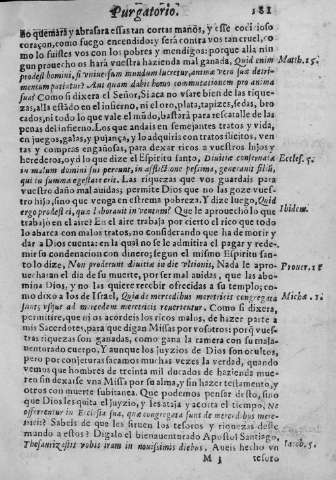 Purgatorio. 181
no quemarà y abrasara essas tan cortas manos, y esse codicioso
coraçon, como fuego encendido; y serà contra vos tan cruel, co-
mo lo fuistes vos con los pobres y mendigos: porque alla nin
gun prouecho os harà vuestra hazienda mal ganada, Quid enim Matth. 15.
prodest homini, si vniuersum mundum lucretur, anima vero sua detri-
mentum patiatur? Aut quam dabit homo commutationem pro anima
sua? Como si dixera el Señor, Si aca no vsare bien de las rique-
zas, alla estado en el infierno, ni el oro, plata, tapizes, sedas, bro-
cados, ni todo lo que vale el mũdo, bastarà para rescatalle de las
penas del infierno. Los que andais en semejantes tratos y vida,
en juegos, galas, y pujança, y lo adquiris con tratos ilicitos, ven
tas y compras engañosas, para dexar ricos a vuestros hijos y
herederos, oyd lo que dize el Espiritu santo, Diuitiæ conseruatæ Eccles. 5.
in malum domini sui pereunt, in afflictione pessima, generauit filiũ,
qui in summa egestate erit. Las riquezas que vos guardais para
vuestro daño mal auidas; permite Dios que no las goze vues-
tro hijo, sino que venga en estrema pobreza. Y dize luego, Quid
ergo prodest ei, quod laborauit in ventum? Que le aprouechò lo que Ibidem.
trabajò en el aire? Es el aire trabaja por cierto el rico que todo
lo abarca con malos tratos, no considerando que ha de morir y
dar a Dios cuenta: en la qual no se le admitira el pagar y rede-
mir su condenacion con dinero; segun el mismo Espiritu san-
to lo dize, Non proderunt diuitiæ in die vltionis, Nada le apro- Prouer. 18
uecharà en el dia de su muerte, por ser mal auidas, que las abo-
mina Dios, y no las quiere recebir ofrecidas a su templo; co-
mo dixo a los de Israel, Quia de mercedibus meretricis congregata Michæ. 1.
sunt, vsque ad mercedem meretricis reuertentur. Como si dixera,
permitire, que ni os acordeis los ricos malos, de hazer parte a
mis Sacerdotes, para que digan Missas por vosotros: porq̃ vues-
tras riquezas son ganadas, como gana la ramera con su mala-
uenturado cuerpo. Y aunque los juyzios de Dios son ocultos,
pero por conjeturas sacamos muchas vezes la verdad, quando
vemos que hombres de treinta mil ducados de hazienda mue-
ren sin dexarse vna Missa por su alma, y sin hazer testamento, y
otros con muerte subitanea. Que podemos pensar desto, sino
que Dios les quita el juyzio, y les ataja y acorta el tiempo, Ne
offerentur in Ecclesia sua, quæ congregata sunt de mercedibus mere-
tricis? Sabeis de que les siruen los tesoros y riquezas deste
mundo a estos? Digalo el bienauenturado Apostol Santiago, Iacob. 5.
Thesaurizastis vobis iram in nouissimis diebus. Aueis hecho vn
M 3 tesoro